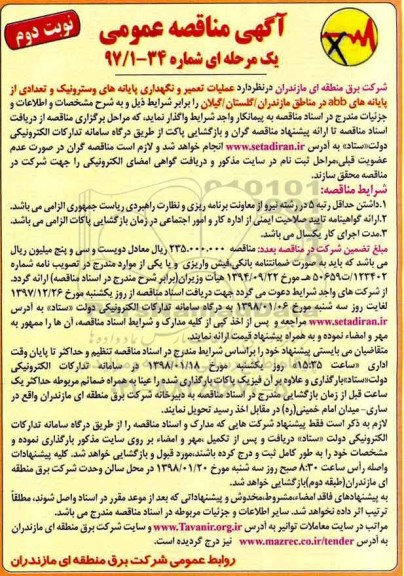 نوبت دوم
آگهی مناقصه عمومی
یک مرحله ای شماره ۳۴-۹۷/۱
شرکت برق منطقه ای مازندران درنظردارد عملیات تعمیر و نگهداری پایانه های وسترونیک و تعدادی از
پایانه های abb در مناطق مازندران/گلستان/گیلان را برابر شرایط ذیل و به شرح مشخصات و اطلاعات و
جزئیات مندرج در اسناد مناقصه به پیمانکار واجد شرایط واگذار نماید، که مراحل برگزاری مناقصه از دریافت
اسناد مناقصه تا ارائه پیشنهاد مناقصه گران و بازگشایی پاکت از طریق درگاه سامانه تدارکات الکترونیکی
دولت«ستاد» به آدرس www.setadiran.ir انجام خواهد شد و لازم است مناقصه گران در صورت عدم
عضویت قبلی،مراحل ثبت نام در سایت مذکور و دریافت گواهی امضای الکترونیکی را جهت شرکت در
مناقصه محقق سازند.
شرایط مناقصه:
۱.داشتن حداقل رتبه ۵ در رشته نیرو از معاونت برنامه ریزی و نظارت راهبردی ریاست جمهوری الزامی می باشد.
۲.ارائه گواهینامه تایید صلاحیت ایمنی از اداره کار و امور اجتماعی در زمان بازگشایی پاکات الزامی می باشد.
۳.مدت اجرای کار یکسال می باشد.
مبلغ تضمین شرکت در مناقصه بعدد: مناقصه ۲۳۵.۰۰۰.۰۰۰ ریال معادل دویست و سی و پنج میلیون ریال
می باشد که باید به صورت ضمانتنامه بانکی،فیش واریزی و یا یکی از موارد مندرج در تصویب نامه شماره
۱۲۳۴۰۲/ت۵۰۶۵۹ه مورخ ۱۳۹۴/۰۹/۲۲ هیأت وزیران(برابر شرح مندرج در اسناد مناقصه) ارائه گردد.
از شرکت های واجد شرایط دعوت می گردد جهت دریافت اسناد مناقصه از روز یکشنبه مورخ ۱۳۹۷/۱۲/۲۶
لغایت روز سه شنبه مورخ ۱۳۹۸/۰۱/۰۶ به درگاه سامانه تدارکات الکترونیکی دولت «ستاد» به آدرس
www.setadiran.ir مراجعه و پس از اخذ کپی از کلیه مدارک و شرایط اسناد مناقصه، آن ها را ممهور به
مهر و امضاء نموده و به همراه پیشنهاد قیمت ارائه نمایند.
متقاضیان می بایستی پیشنهاد خود را براساس شرایط مندرج در اسناد مناقصه تنظیم و حداکثر تا پایان وقت
اداری «ساعت ۱۵:۳۵» روز یکشنبه مورخ ۱۳۹۸/۰۱/۱۸ در سامانه تدارکات الکترونیکی
دولت«ستاد»بارگذاری و علاوه بر آن فیزیک پاکات بارگذاری شده را عینا به همراه ضمائم مربوطه حداکثر یک
ساعت قبل از زمان بازگشایی مندرج در اسناد مناقصه به دبیرخانه شرکت برق منطقه ای مازندران واقع در
ساری- میدان امام خمینی(ره) در مقابل اخذ رسید تحویل نمایند.
لازم به ذکر است فقط پیشنهاد شرکت هایی که مدارک و اسناد مناقصه را از طریق درگاه سامانه تدارکات
الکترونیکی دولت «ستاد» دریافت و پس از تکمیل ،مهر و امضاء بر روی سایت مذکور بارگذاری نموده و
مشخصات خود را به طور کامل ثبت و درج کرده باشند،مورد قبول و بازگشایی خواهد شد. کلیه پیشنهادات
واصله رأس ساعت ۸:۳۰ صبح روز سه شنبه مورخ ۱۳۹۸/۰۱/۲۰ در محل سالن وحدت شرکت برق منطقه
ای مازندران(طبقه دوم)بازگشایی خواهد شد.
به پیشنهادهای فاقد امضاء،مشروط،مخدوش و پیشنهاداتی که بعد از موعد مقرر در اسناد واصل شوند، مطلقاً
ترتیب اثر داده نخواهد شد. سایر اطلاعات و جزئیات مربوطه در اسناد مناقصه مندرج می باشد.
مراتب در سایت معاملات توانیر به آدرس www.Tavanir.org.ir و سایت شرکت برق منطقه ای مازندران
به آدرس www.mazrec.co.ir/tender نیز درج گردیده است.
روابط عمومی شرکت برق منطقه ای مازندران